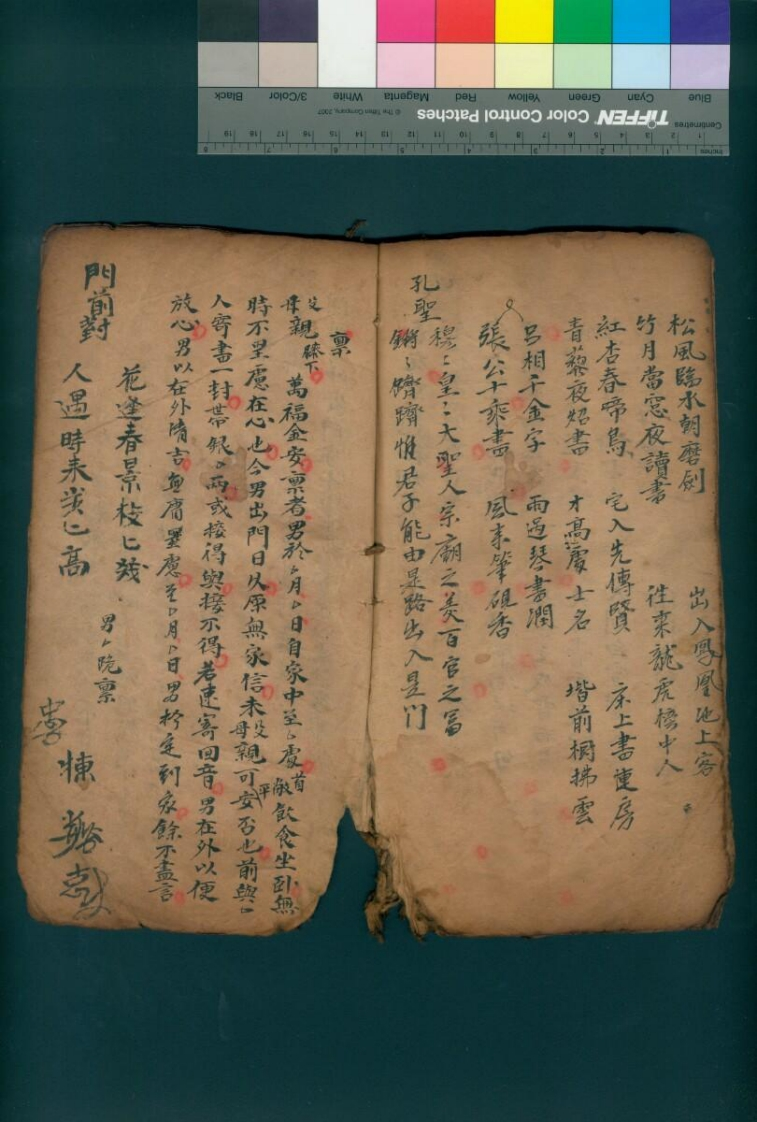 Blue Cyan Green Yellow Red Magenta White 3/Color Black
TIFFEN Color Control Patches
© The Tiffen Company, 2007
Centimetres
Inches
松風臨水朝磨劍 出入鳳凰池上客
竹月當窓夜讀書 往來龍虎榜中人
紅杏春啼鳥 宅入先傳賢 床上書連房
青藜夜炤書 才高慶士名 堦前樹拂雲
呂相千金字 雨過琴書潤
張公十乘書 風來筆硯香
孔聖
穆〻皇〻大聖人宗廟之美百官之富
鏘〻蹌蹌惟君子能由是路出入是门
禀
父母親膝下 萬福金安禀者男於厶月厶日自家中至厶處首敵飲食坐卧無
時不罣慮在心也今男出門日久原無家信未父母親可平安否也前與厶
人寄書一封帶銀厶両或接得與接不得若速寄回音男在外以便
放心男以在外清吉無庸罣慮至厶月厶日男於定到家餘不盡言
男厶跪禀
門前對
花逢春景枝〻茂
人遇時來步〻高